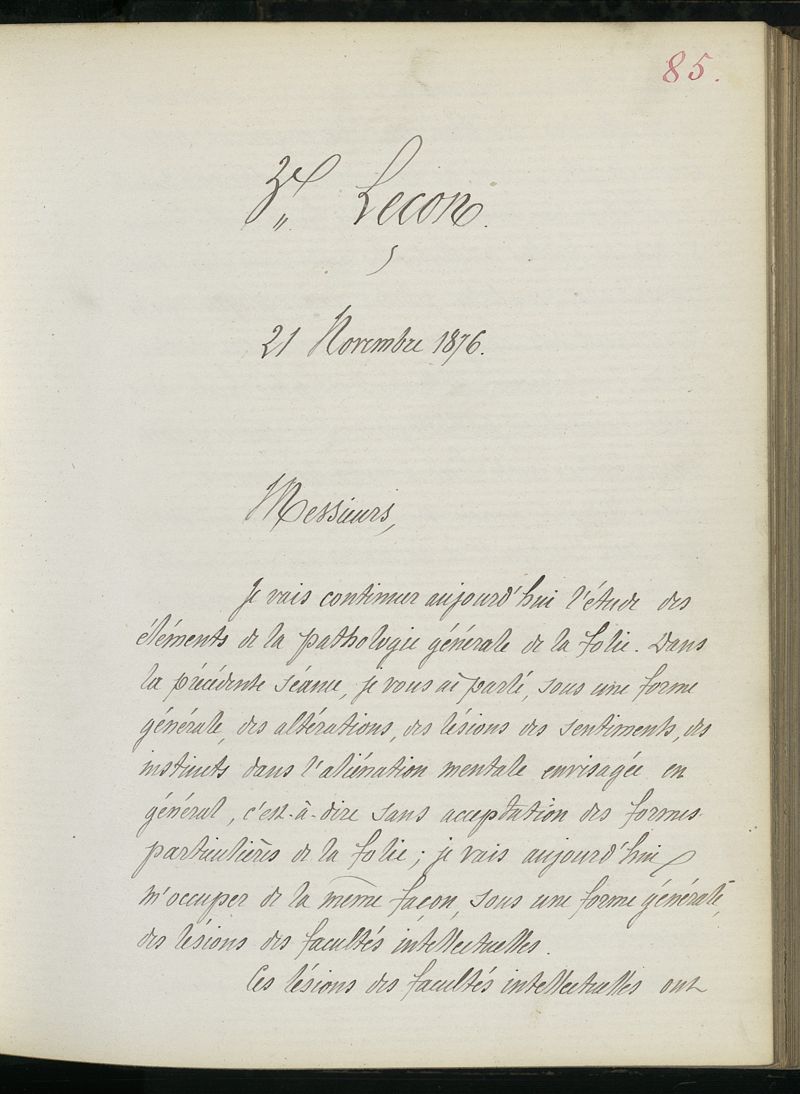 85.
3e Leçon.
21 Novembre 1876.
Messieurs,
Je vais continuer aujourd'hui l'étude des
éléments de la pathologie générale de la folie. Dans
la précédente séance, je vous ai parlé, sous une forme
générale, des altérations, des lésions des sentiments, des
instincts dans l'aliénation mentale envisagée en
général, c'est-à-dire sans acceptation des formes
particulières de la folie; je vais aujourd'hui
m'occuper de la même façon, sous une forme générale,
des lésions des facultés intellectuelles.
Ces lésions des facultés intellectuelles ont